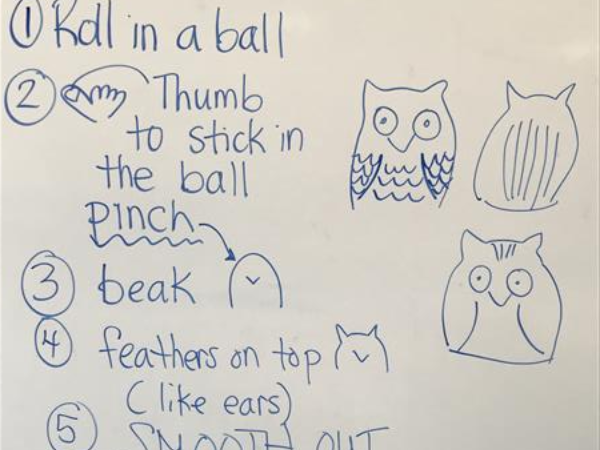 ① Roll in a ball
② Thumb
to stick in
the ball
pinch
③ beak
④ feathers on top
(like ears)
⑤ SMOOTH OUT